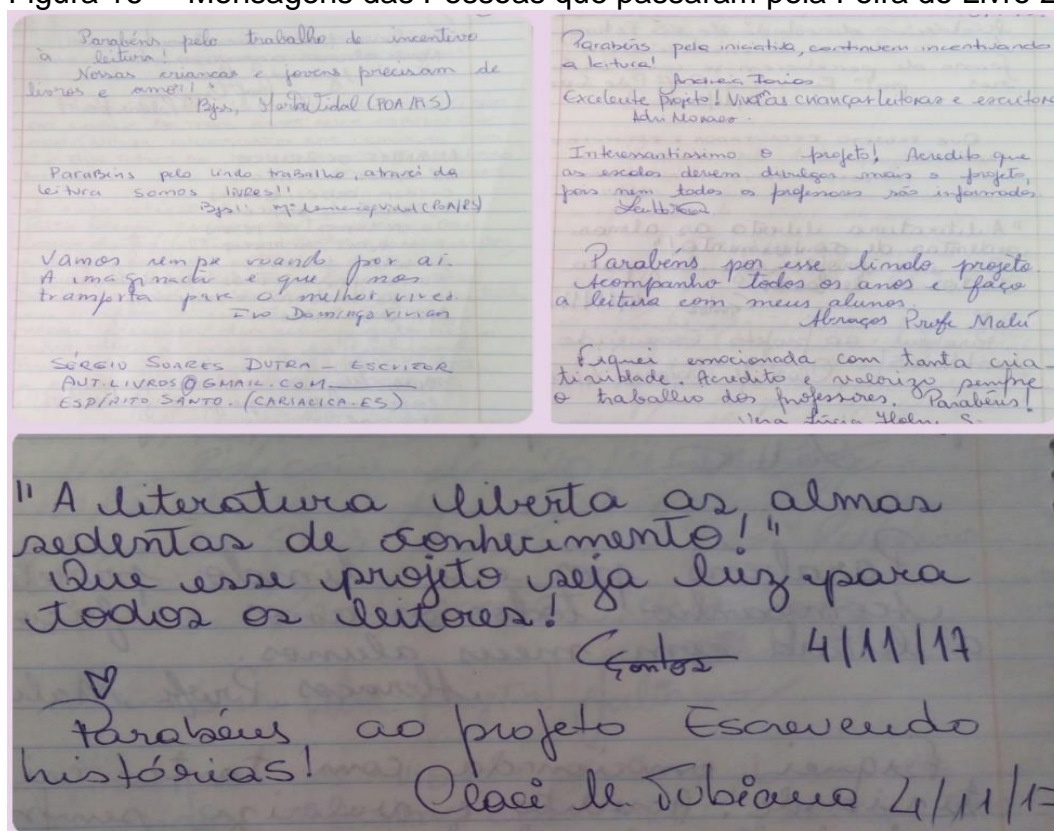 Mensagens das Pessoas que passaram pela Feira do Livro
Parabéns pelo trabalho de incentivo
à leitura!
Nossas crianças e jovens precisam de
livros e amor!!
Bjs, Vidal (POA/RS)
Parabéns pelo lindo trabalho, através da
leitura somos livres!!
Bjs!! Vidal (POA/RS)
Vamos sempre voando por aí.
A imaginação é que nos
transporta para o melhor viver.
Ivo Domingo Vivian
SÉRGIO SOARES DUTRA - ESCRITOR
AUT.LIVROS@GMAIL.COM
ESPÍRITO SANTO. (CARIACICA-ES)
Parabéns pela iniciativa, continuem incentivando
a leitura!
Andreia
Excelente projeto! Viva as crianças leitoras e escritoras
Adri Moraes.
Interessantíssimo o projeto! Acredito que
as escolas devem divulgar mais o projeto,
pois nem todos os professores são informados.
Parabéns por esse lindo projeto.
Acompanho todos os anos e faço
a leitura com meus alunos.
Abraços Profe Malú
Fiquei emocionada com tanta cria-
tividade. Acredito e valorizo sempre
o trabalho dos professores. Parabéns!
Vera Lúcia S.
"A literatura liberta as almas
sedentas de conhecimento!"
Que esse projeto seja luz para
todos os leitores!
4/11/17
Parabéns ao projeto Escrevendo
histórias!
Claci 4/11/17